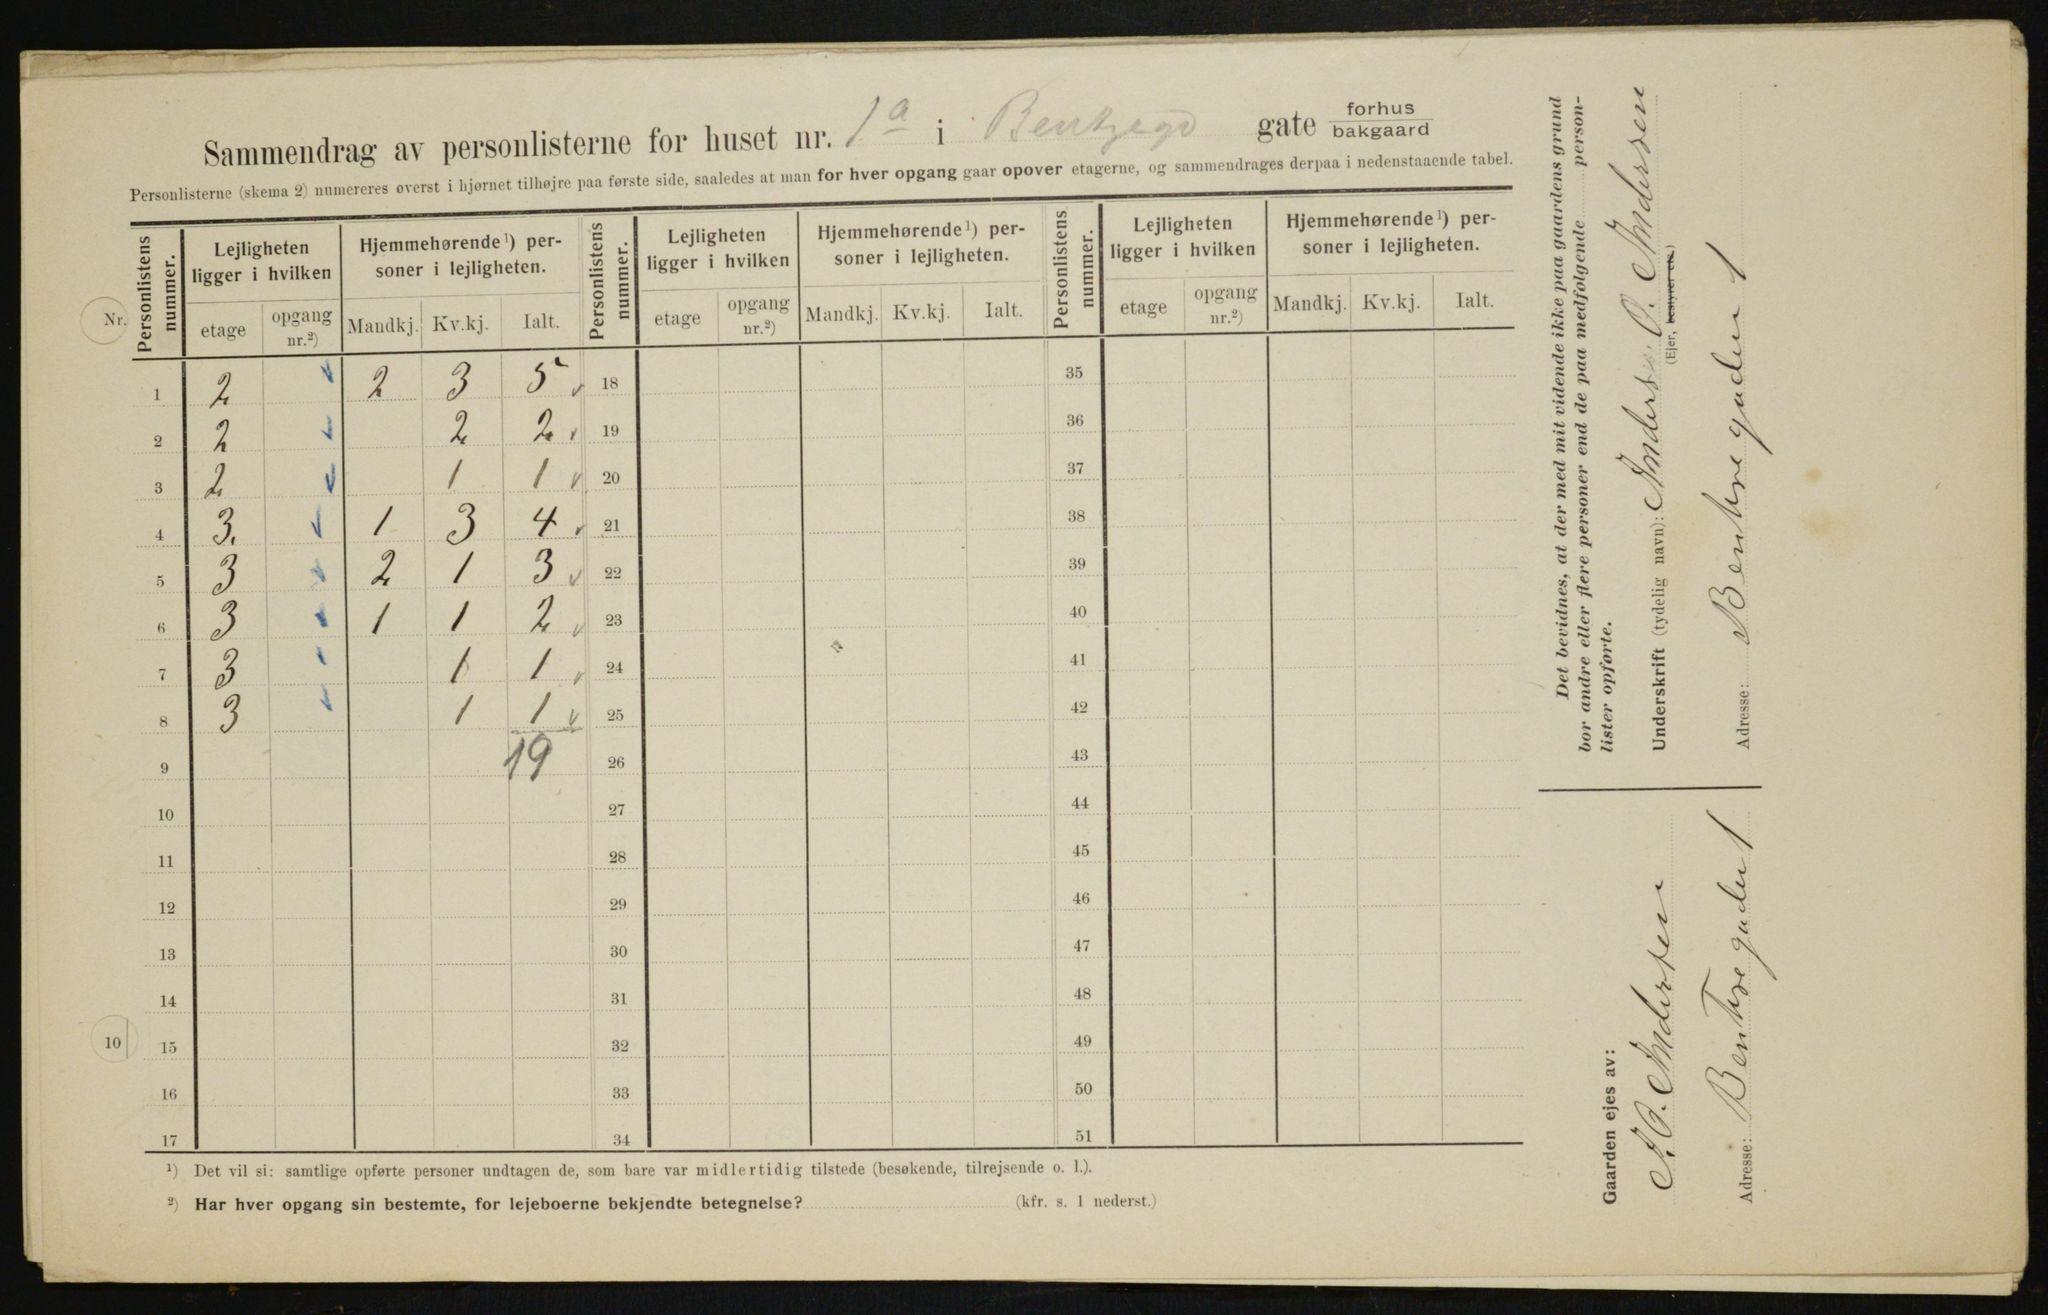 Sammendrag av personlisterne for huset nr. 1a i Bentzegd gate forhus bakgaard
Personlisterne (skema 2) numereres øverst i hjørnet tilhøjre paa første side, saaledes at man for hver opgang gaar opover etagerne, og sammendrages derpaa i nedenstaaende tabel.
Personlistens nummer. Lejligheten ligger i hvilken Hjemmehørende¹) personer i lejligheten. Personlistens nummer. Lejligheten ligger i hvilken Hjemmehørende¹) personer i lejligheten. Personlistens nummer. Lejligheten ligger i hvilken Hjemmehørende¹) personer i lejligheten.
Nr. etage opgang nr.²) Mandkj. Kv.kj. Ialt. etage opgang nr.²) Mandkj. Kv.kj. Ialt. etage opgang nr.²) Mandkj. Kv.kj. Ialt.
1 2 2 3 5 18 35
2 2 2 2 19 36
3 2 1 1 20 37
4 3. 1 3 4 21 38
5 3 2 1 3 22 39
6 3 1 1 2 23 40
7 3 1 1 24 41
8 3 1 1 25 42
9 19 26 43
10 27 44
11 28 45
12 29 46
13 30 47
14 31 48
10 15 32 49
16 33 50
17 34 51
¹) Det vil si: samtlige opførte personer undtagen de, som bare var midlertidig tilstede (besøkende, tilrejsende o. l.).
²) Har hver opgang sin bestemte, for lejeboerne bekjendte betegnelse? (kfr. s. 1 nederst.)
Det bevidnes, at der med mit vidende ikke paa gaardens grund
bor andre eller flere personer end de paa medfølgende personlister opførte.
Underskrift (tydelig navn): Anders O. Andersen
(Ejer, bestyrer etc.)
Adresse: Bentsegaden 1
Gaarden ejes av:
A. O. Andersen
Adresse: Bentsegaden 1